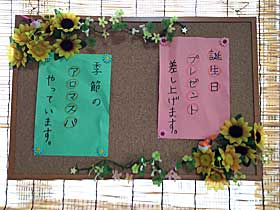 誕生日
プレゼント
差し上げます。
季節の
アロマスパ
やっています。